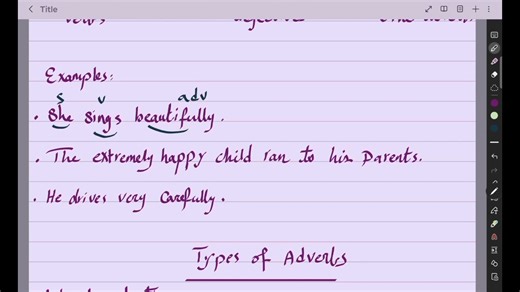 Title
Examples:
S V adv
• She Sings beautifully.
• The extremely happy child ran to his Parents.
• He drives very Carefully.
Types of Adverbs